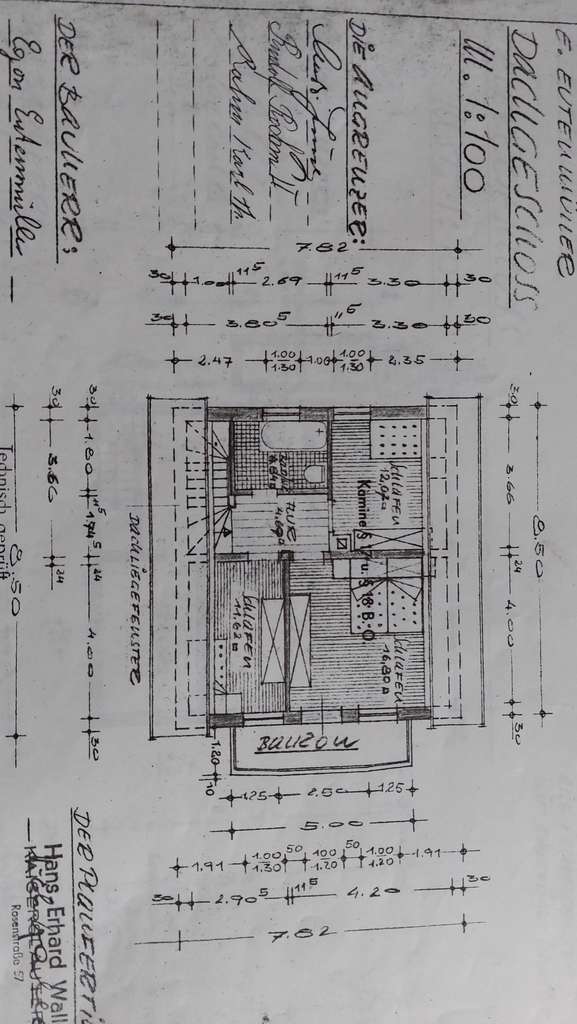 E. EUTENMÜLLER
DACHGESCHOSS
M. 1:100
DIE ANGRENZER:
Rahm Karl
DER BAUHERR:
Egon Eutenmüller
7.82
30 1.00 11⁵ 2.69 11⁵ 3.30 30
30 3.80⁵ 11⁵ 3.30 30
2.47 1.00/1.30 1.00 1.00/1.30 2.35
8.50
30 3.66 24 4.00 30
SCHLAFEN
12,07
Kamine § 17 u. § 18 B.O.
FLUR
SCHLAFEN
16,80
SCHLAFEN
11,62
BALKON
DACHLIEGEFENSTER
30 1.80 11⁵ 1.74⁵ 24 4.00 30
30 3.66 24
8.50
Technisch geprüft
1.20
10
1.25 2.50 1.25
5.00
1.91 1.00/1.30 50 1.00/1.20 50 1.00/1.20 1.91
30 2.90⁵ 11⁵ 4.20 30
7.82
DER PLANFERTI
Hans Erhard Wall
Rosenstraße 57